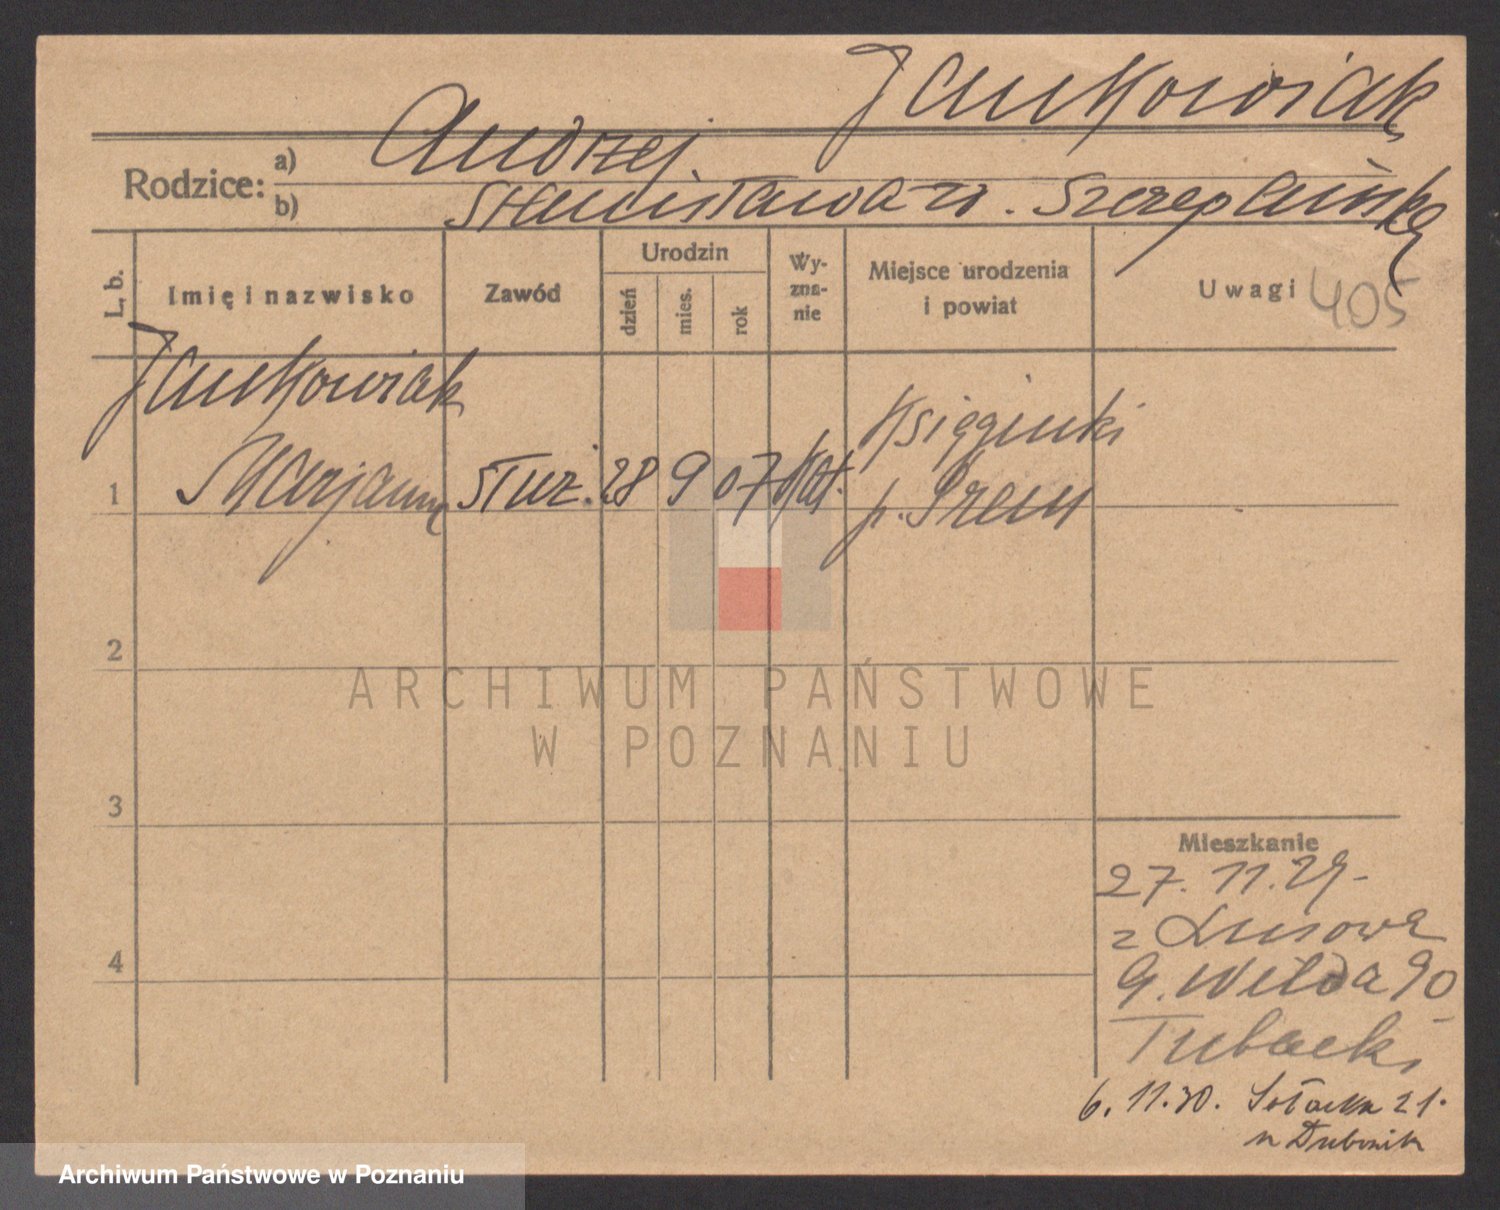 Jankowiak
Rodzice: a) Andrzej
b) Stanisława z d. Szczeplińska
L. b.
Imię i nazwisko
Zawód
Urodzin
dzień
mies.
rok
Wy-
zna-
nie
Miejsce urodzenia
i powiat
Uwagi 405
Jankowiak
1 Marjanna służ. 28 9 07 kat. Księginki
p. Śrem
2
3
4
ARCHIWUM PAŃSTWOWE
W POZNANIU
Mieszkanie
27. 11. 29.
z Lusowa
G. Wilda 90
6. 11. 30. Sołacka 21.
Archiwum Państwowe w Poznaniu